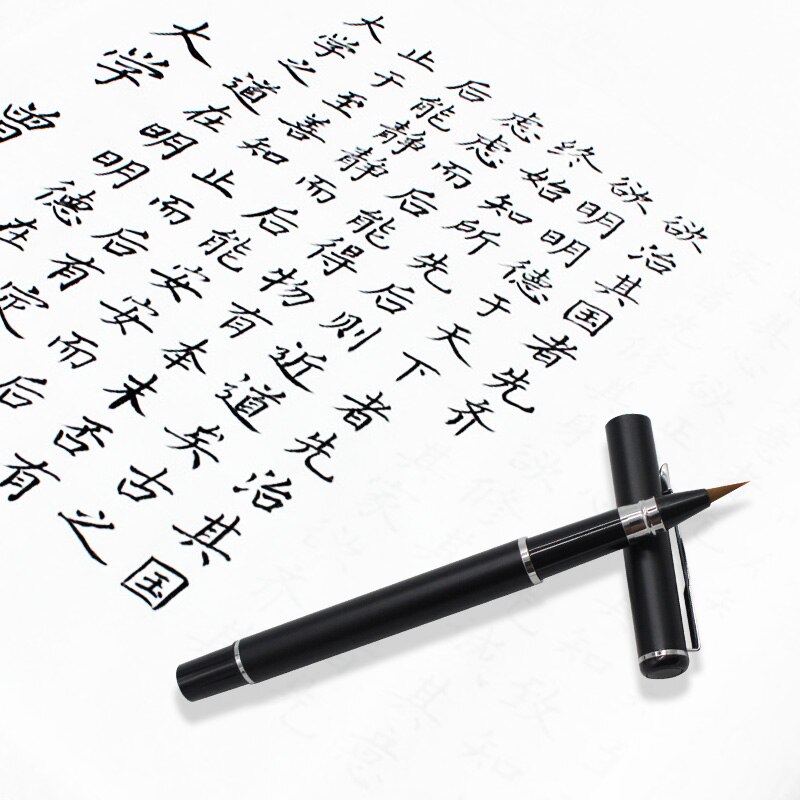 大学
曾
大学之道在明明德在
止于至善知止而后有定
后能静静而后能安安而后
虑虑而后能得物有本末否有
终始知所先后则近道矣古之
欲明明德于天下者先治其国
欲治其国者先齐